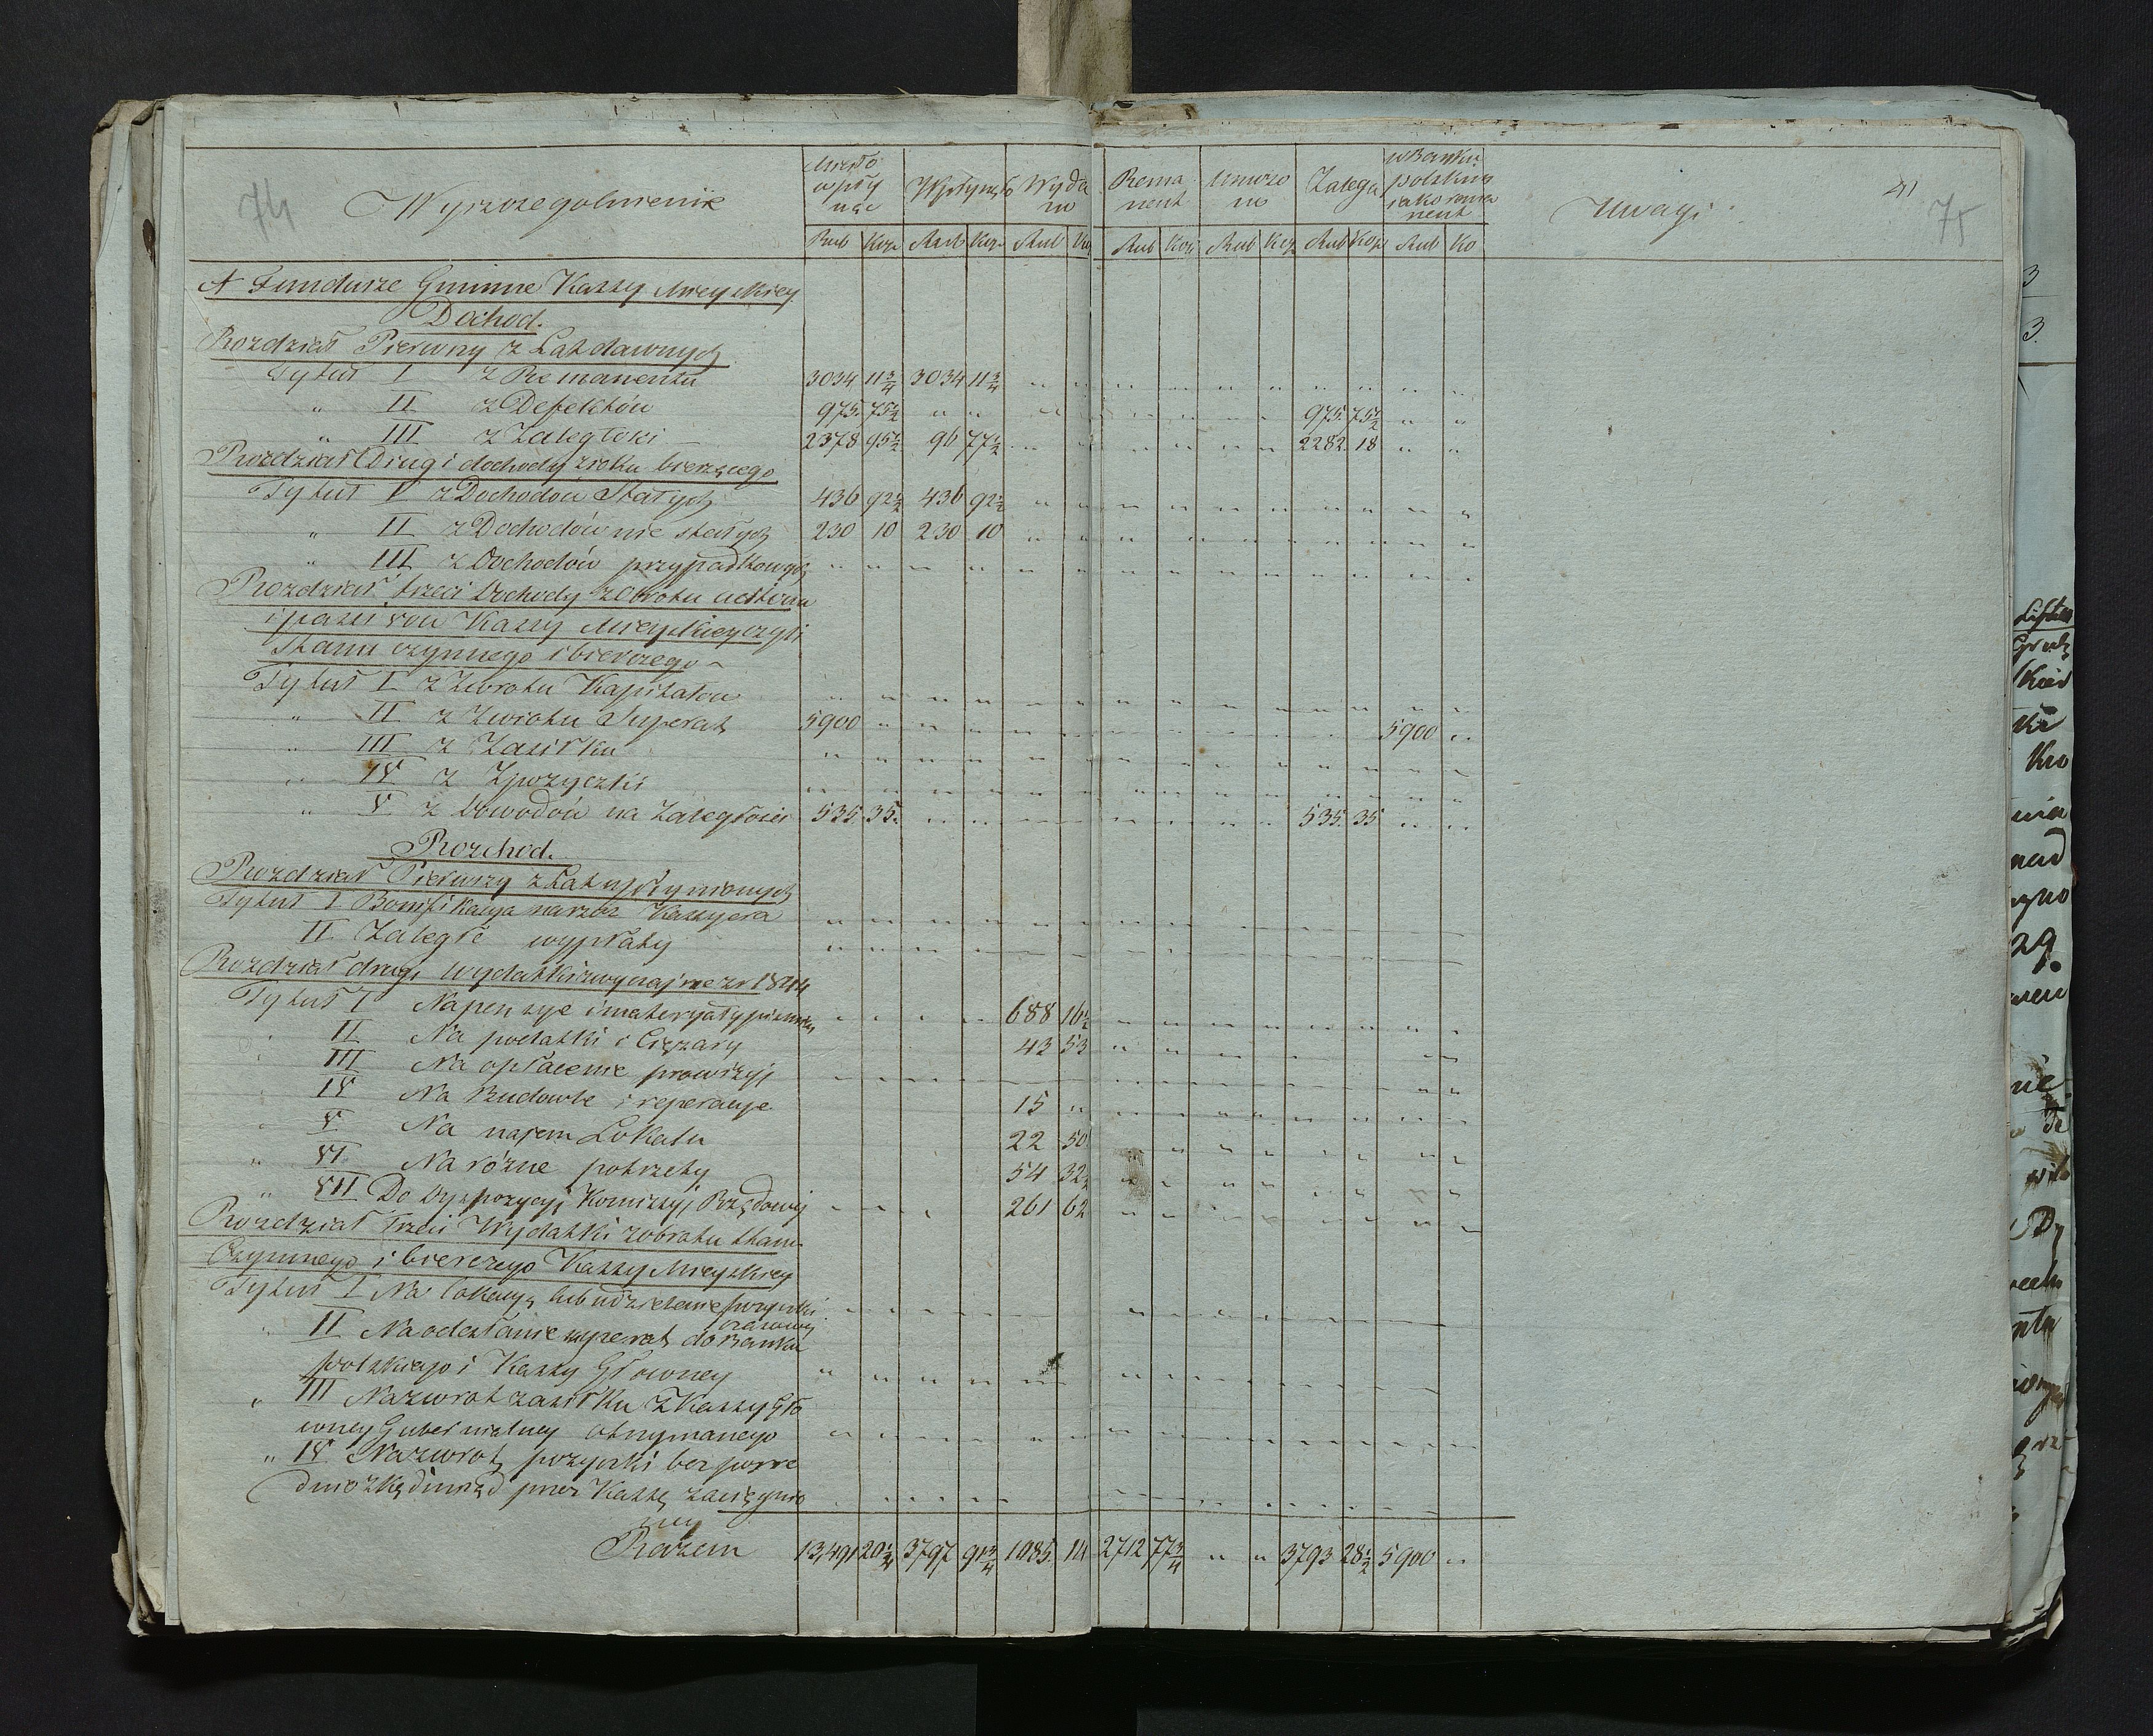 74
Wyszczegolnienie
Miało wpły nąc
Wpłynęło
Wyda no
Rema nent
Umorzo no
Zalega
w Banku polskim jako rema nent
Uwagi
41
75
Rub Kop Rub Kop Rub Ko Rub Kop Rub Kop Rub Kop Rub Ko
A Fundusze Gminne Kassy Mieyskiey
Dochod.
Rozdział Pierwszy z Lat dawnych
Tytuł I z Remanentu 3034 11 3/4 3034 11 3/4 " " " " " " " " " "
" II z Defektów 975. 75 1/2 " " " " " " " " 975. 75 1/2 " "
" III z Zaległości 2378 95 1/2 96 77 1/2 " " " " " " 2282. 18 " "
Rozdział Drugi dochody z roku bieżącego
Tytuł I z Dochodów Stałych 436 92 1/2 436 92 1/2 " " " " " " " " " "
" II z Dochodów nie stałych 230 10 230 10 " " " " " " " " " "
" III z Dochodów przypadkowych " " " " " " " " " " " " " "
Rozdział trzeci Dochody z Obrotu activów
i passivów Kassy Mieyskiey czyli
Stanu czynnego i bierczego
Tytuł I z Zwrotu Kapitałow " " " " " " " " " " " " " "
" II z Zwrotu Superat 5900 " " " " " " " " " " " 5900 "
" III z Zasiłku " " " " " " " " " " " " " "
" IV z Zpozyczki " " " " " " " " " " " " " "
" V z Dowodów na Zaległości 535 35. " " " " " " " " 535. 35 " "
Rozchod.
Rozdział Pierwszy z Lat upłynionych
Tytuł I Bonifikacya na rzecz Kassyera " " " " " " " " " "
II Zaległe wypłaty " " " " " " " " " "
Rozdział drugi Wydatki zwyczajne z r. 1844
Tytuł I Na pensye i materyały piśmienne " " " " 688 16 1/2 " " " " " " " "
" II Na podatki i Ciężary 43 53 " " " " " " " "
" III Na opłacenie prowizyi " " " " " " " " " " " " " "
" IV Na Budowle i reperacye 15 " " " " " " " " "
" V Na najem Lokalu 22 50 " " " " " " " "
" VI Na różne potrzeby 54 32 1/2 " " " " " " " "
" VII Do Dyspozycyi Komissyi Rządowej " " " " 261 62 " " " " " " " "
Rozdział trzeci Wydatki z obrotu stanu
Czynnego i bierczego Kassy Mieyskiey
Tytuł I Na lokacyą lub udzielenie pożyczki " " " " " " " " " "
czasowej
" II Na odesłanie superat do Banku
polskiego i Kassy Głowney " " " " " " " " " " " "
" III Na zwrot zasiłku z Kassy Gło
wney Gubernialney otrzymanego " " " " " " " " " " " "
" IV Na zwrot pożyczki bezpośre
dnio zkądinąd przez Kassę zaciągnio
ney
Razem 13,491 20 1/4 3797 91 3/4 1085 14 2712 77 3/4 " " 3793 28 1/2 5900 "